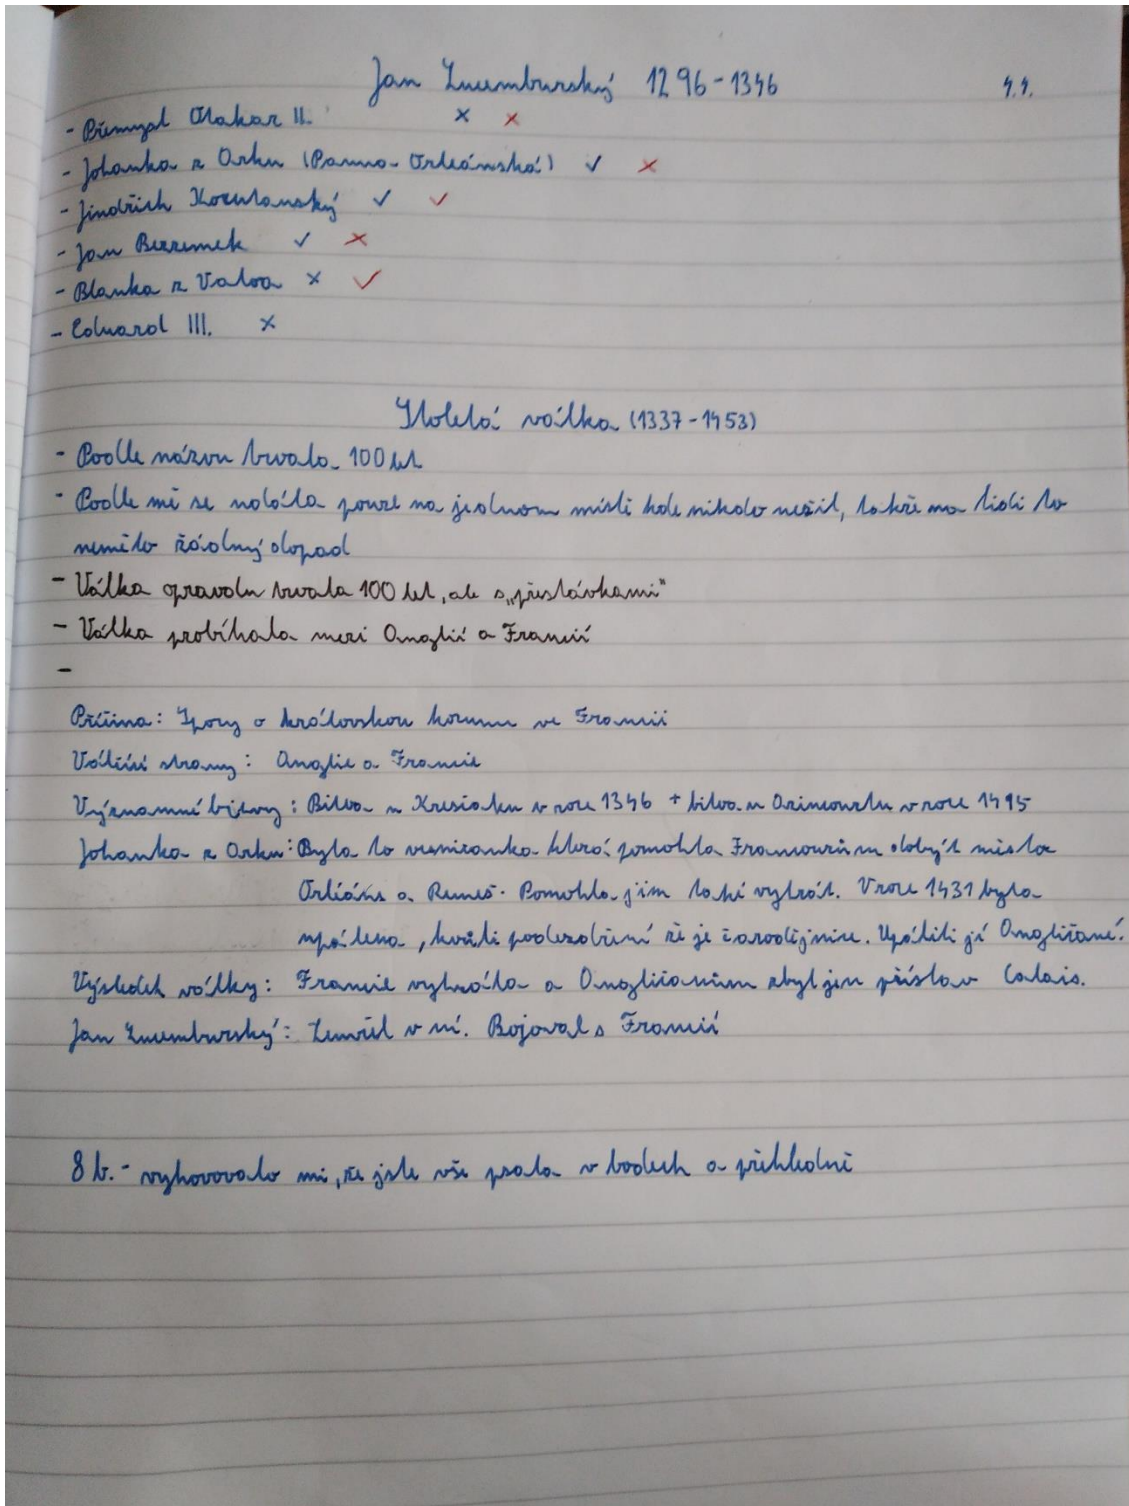 Jan Lucemburský 1296-1346 4.4.
- Přemysl Otakar II. × ×
- Johanka z Arku (Panna Orleánská) ✓ ×
- Jindřich Korutanský ✓ ✓
- Jan Bezzemek ✓ ×
- Blanka z Valoa × ✓
- Eduard III. ×
Stoletá válka (1337-1453)
- Podle názvu trvala 100 let
- Podle mě se událа pouze na jednom místě kde nikdo nežil, takže na lidi to
nemělo žádný dopad
- Válka opravdu trvala 100 let, ale s „přestávkami"
- Válka probíhala mezi Anglií a Francií
-
Příčina: Spory o královskou korunu ve Francii
Válčící strany: Anglie a Francie
Významné bitvy: Bitva u Kresčaku v roce 1346 + bitva u Azincourtu v roce 1415
Johanka z Arku: Byla to vesničanka která pomohla Francouzům dobýt města
Orleáns a Remeš. Pomohla jim také vyhrát. V roce 1431 byla
upálena, kvůli podezdření že je čarodějnice. Upálili jí Angličané.
Výsledek války: Francie vyhrála a Angličanům zbyl jen přístav Calais.
Jan Lucemburský: Zemřel v ní. Bojoval s Francií
8 b. - vyhovovalo mi, že jste vše psala v bodech a přehledně